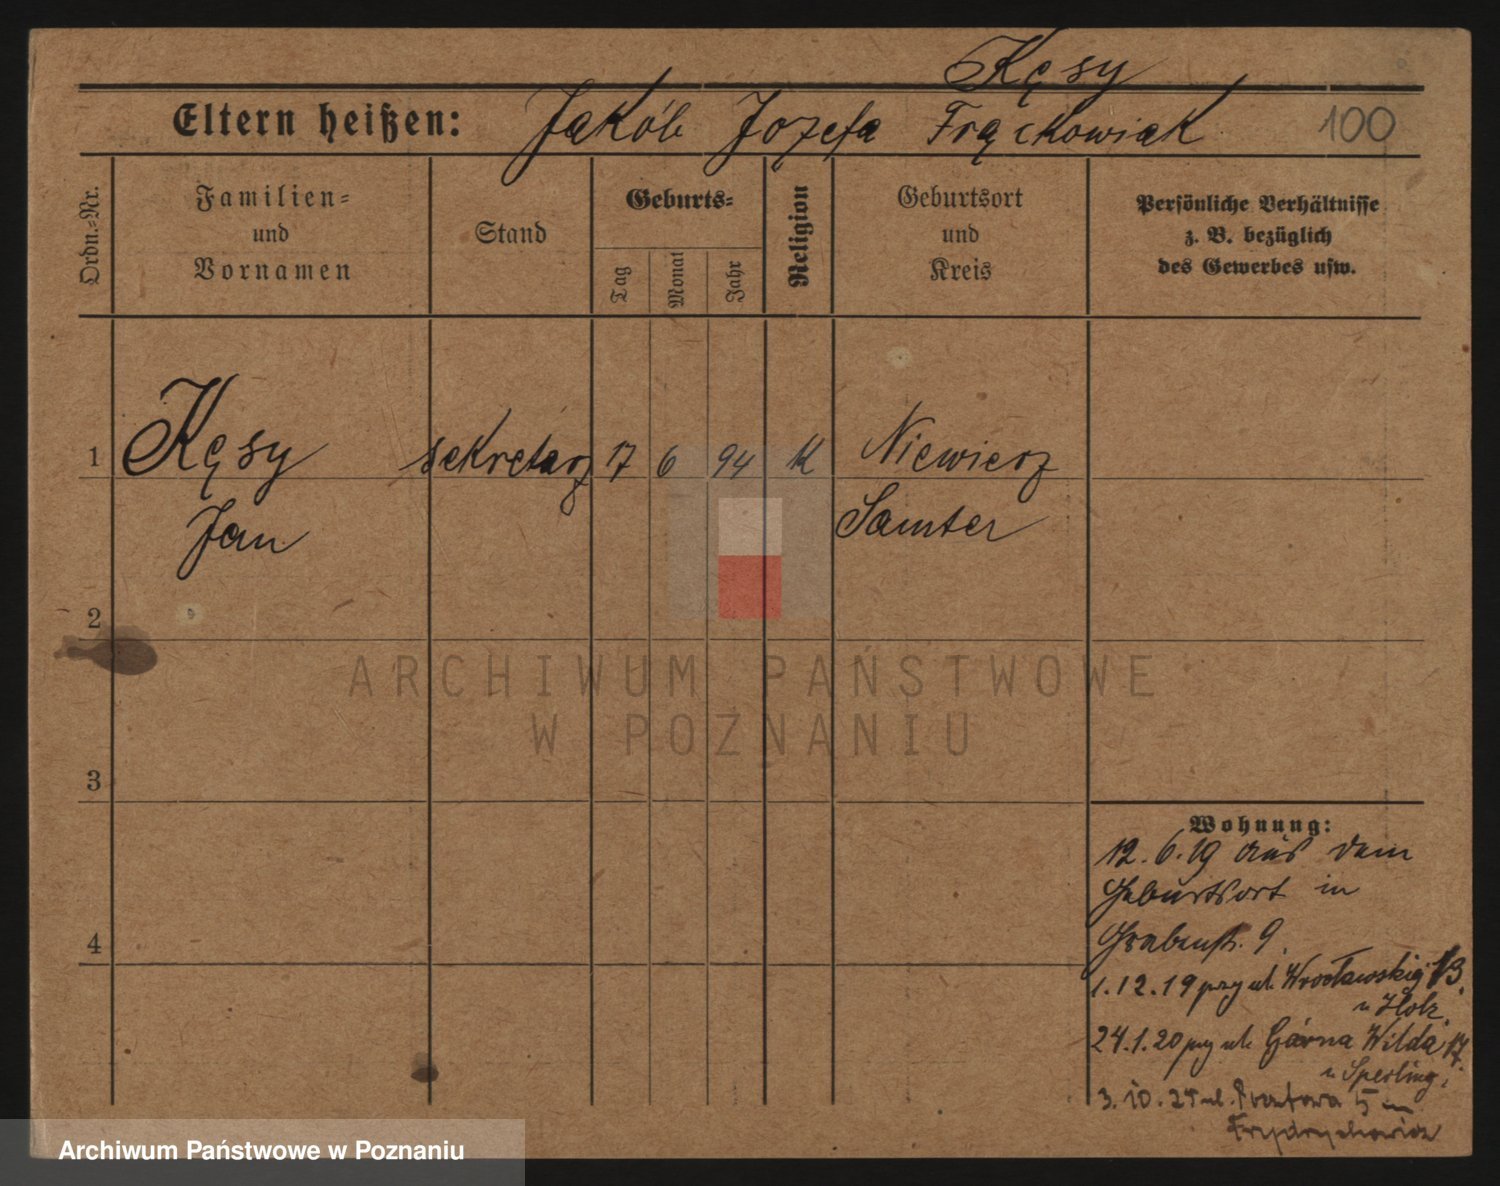 Kęsy
Eltern heißen: Jakób Jozefa Frąckowiak 100
Ordn.-Nr.
Familien-
und
Vornamen
Stand
Geburts-
Tag
Monat
Jahr
Religion
Geburtsort
und
Kreis
Persönliche Verhältnisse
z. B. bezüglich
des Gewerbes usw.
1 Kęsy sekretarz 17 6 94 K Niewierz
Jan Samter
2
ARCHIWUM PAŃSTWOWE
W POZNANIU
3
Wohnung:
12.6.19 aus dem
Geburtsort in
Grabenstr. 9.
4
1.12.19 przy ul. Wrocławskiej 13.
u Holz.
24.1.20 przy ul. Górna Wilda 17.
u Sperling.
3.10.25 ul. Pocztowa 5
Frydrychowicz
Archiwum Państwowe w Poznaniu